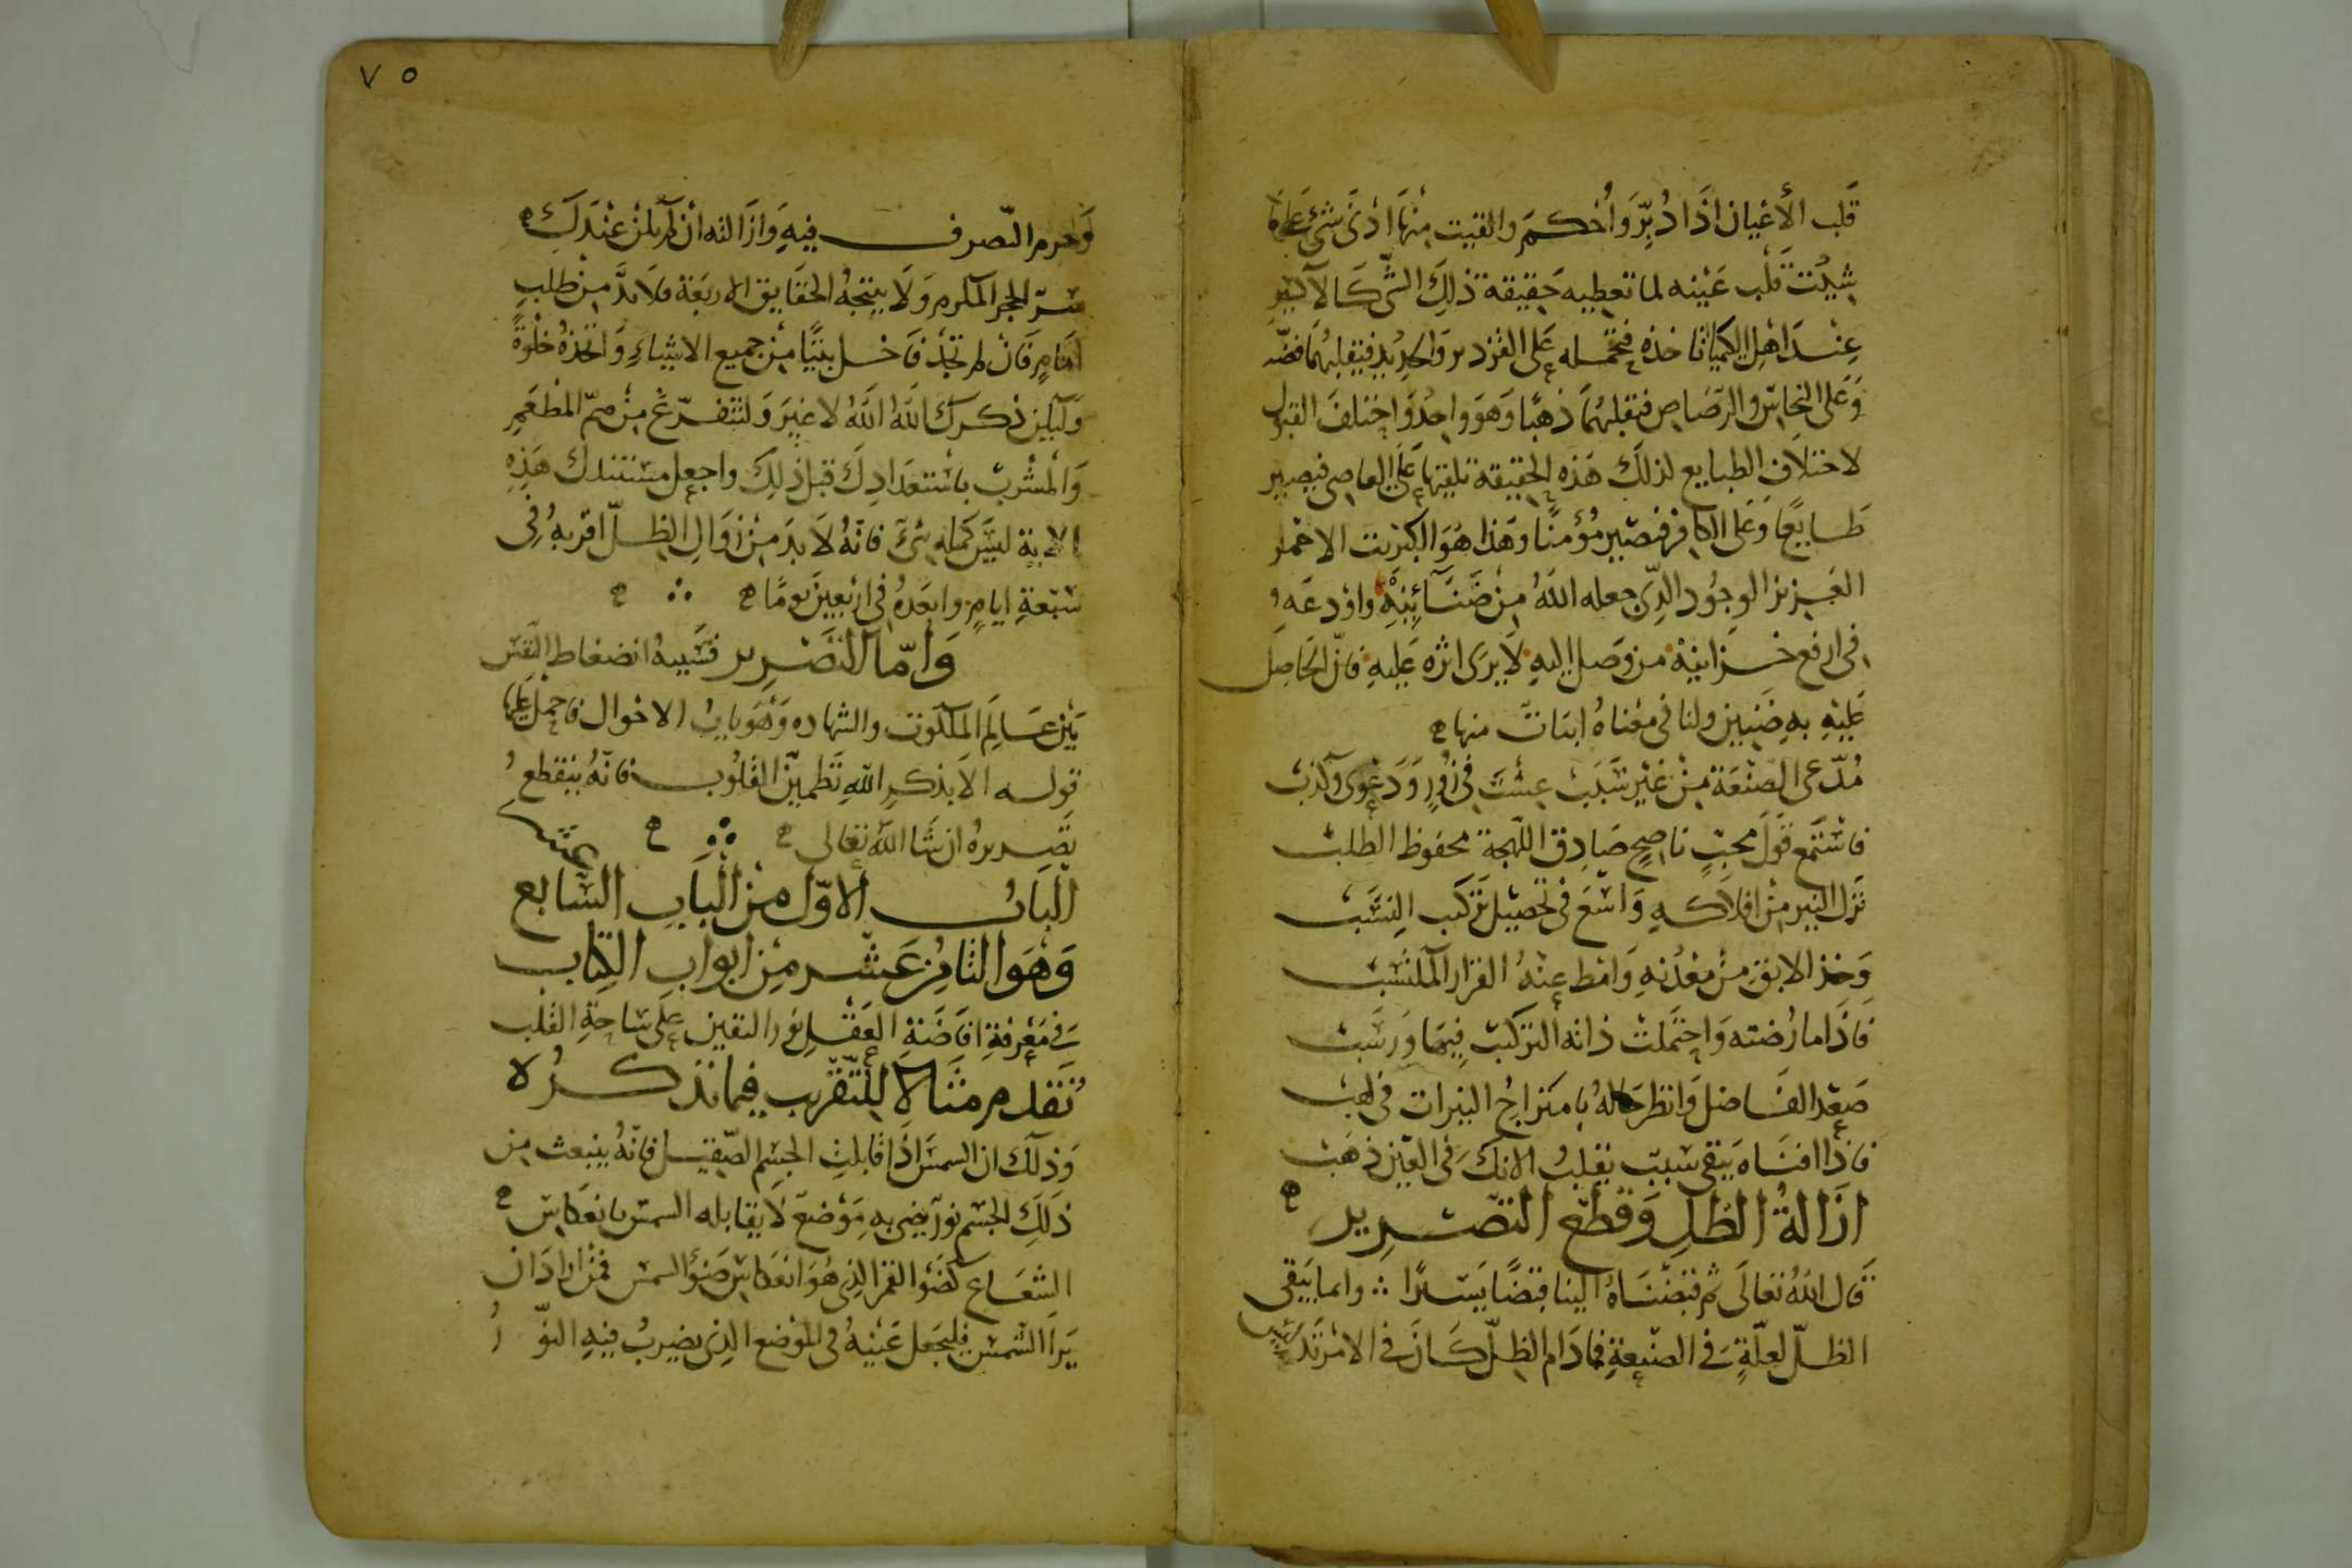 قَلب الأعْيان اذَا دُبِّرَ وَأُحْكمَ والقيت مِنْهَا ادْنَى شَئٍ عَلى
شِيْتَ قَلْب عَيْنه لما تعطِيه حَقِيقة ذلِكَ الشَّى كَالاكسير
عِنْدَ اهْلِ الكيميا تاخذه فتحمله عَلى القزدير وَالحديد فيقلبهُمَا فضّه
وَعَلى النحَاسِ والرّصَاص فتقلبهُمَا ذهبًا وَهوَ واحِدُ وَاختلفَ القبول
لاختلافِ الطبايع لذلكَ هَذه الحقيقة تلقيها عَلى العاصِى فيصير
طَايعًا وَعَلى الكافِر فيصير مُؤمنًا وهَذا هُوَ الكبريت الاحمر
العَزيز الوجُود الذِّى جعله اللهُ مِنْ ضَنَآئِنِهْ واوْدعَهُ
فى ارفع خزاينهْ من وَصل اليهِ لاَ يرَى اثره عَليهِ فانّ الحاصِل
عَليْهِ بهِ ضَنين ولنا فى معْناهُ ابيَات منها ه
مُدّعى الصنْعَة مِنْ غَيْر سَبَب عِشْتَ فى زُورٍ وَدَعْوى وكذبْ
فاسْتَمع قَولَ محبٍّ ناصِحٍ صَادِق اللّهجَة محفوظ الطلبْ
نَزّل النير مِنْ افلاكهِ وَاسْعَ فى تحصِيل تركيب النِسَبْ
وَخذ الابق مِنْ معْدنهِ وَامْط عنْهُ الغرار المكتسَبْ
فاذَا ما رُضته وَاحتَملتْ ذاته التركيبَ فيهَا وَرسَبْ
صَعّد الفَاضل وَانظر حَالهُ بامتزاجِ النيرات فى لهبْ
فاذَا افنَاه يَبقى سَببٌ يقلبُ الانكَ فى العَين ذهَبْ
ازَالةُ الظلِ وَقطع التصْرِير ه
قَال اللهُ تعَالَى ثم قبضْنَاهُ الينا قبضًا يَسيرًا ∴ وانما يَبقى
الظلّ لعِلّةٍ فى الصنْعةِ فمَا دَام الظلّ كَانَ فى الامْر
٧٥
وَحرم التّصرف فيهِ وَازَالته ان لم يكن عنْدَكَ ه
سرّ الحجر المكرم وَلاَ ينتجهُ الحقايق الاربَعَة فلاَ بدَّ مِنْ طلبِ
امَامٍ فَانْ لم تجدْ فَاخل بيتًا مِنْ جميع الاشيَاءِ وَاتخذهُ خلوَةً
وَليكن ذكرك اللهَ اللهُ لا غيرَ وَلتتفرّغ مِنْ همّ المطعَمِ
وَالمشْربْ باسْتعدَادِكَ قبل ذلِكَ واجعل مستندك هَذِهِ
الاية ليسَ كمثلهِ شئ فانّهُ لاَ بدَ مِنْ زوَالِ الظلّ اقربهُ فى
سَبْعةِ ايامٍ وابعدهُ فى اربَعينَ يومًا ه ∴ ه
وَامّا التصْرِير فسَببهُ انضغاط النفس
بَيْن عَالمِ الملكوت والشهاده وَهْوَ بابُ الاحْوال فاحمل عَليها
قوله الاَ بذكرِ اللهِ تَطمئِنّ القلُوب فانّهُ ينقطعُ
تَصريرهُ ان شَا اللهُ تعَالى ه ∴ ه
البَابُ الاوّل مِنَ البَابِ السَابع عشر
وَهْوَ الثامِن عَشر مِنْ ابوابِ الكِتاب
فى مَعْرفةِ افاضَةِ العَقْلِ نورَ اليقين عَلى سَاحةِ القَلب
نُقَدم مثَالاً للتَّقْرِيب فيما نذكرُه
وَذلكَ ان الشمسَ اذَا قابلتِ الجسْم الصّقيل فانّهُ ينبعث مِن
ذَلكَ الجسْم نورٌ يضِى بهِ مَوْضع لاَ يقابله الشمس بانعَكاسِ ه
الشعَاع كضَوْ القمَر الذِى هُوَ انعكاس ضَوْ الشمس فمَنْ ارادَ ان
يَرَا الشمْسَ فليجعَل عَينهُ فى الموْضعِ الذِى يضِربُ فيهِ النوُّرُ